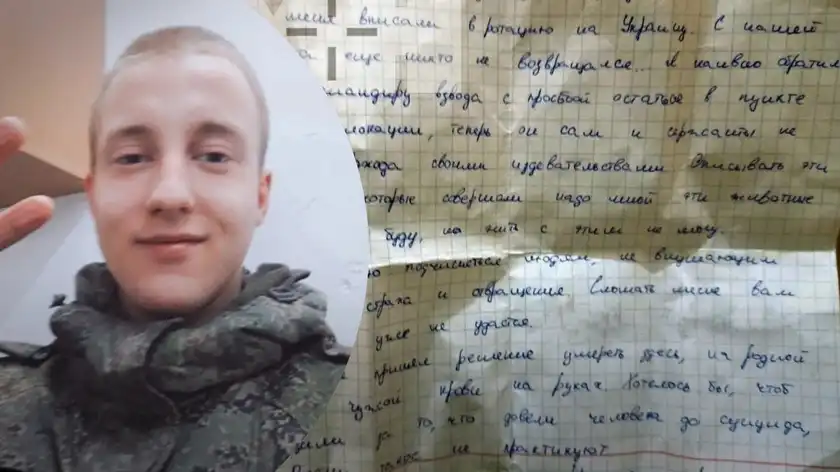 меня вписали в ротацию на Украину. С нашей
еще никто не возвращался. Я наивно обратил
командиру взвода с просьбой остаться в пункте
локации, теперь он сам и сержанты не
хода своими издевательствами. Описывать эти
которые совершали надо мной эти животные
буду, но жить с этим не могу.
ю подчиняться людям, не внушающим
страха и отвращения. Сломать меня вам
уже не удастся.
принял решение умереть здесь, на родной
чужой крови на руках. Хотелось бы, чтоб
за то, что довели человека до суицида,
не практикуют